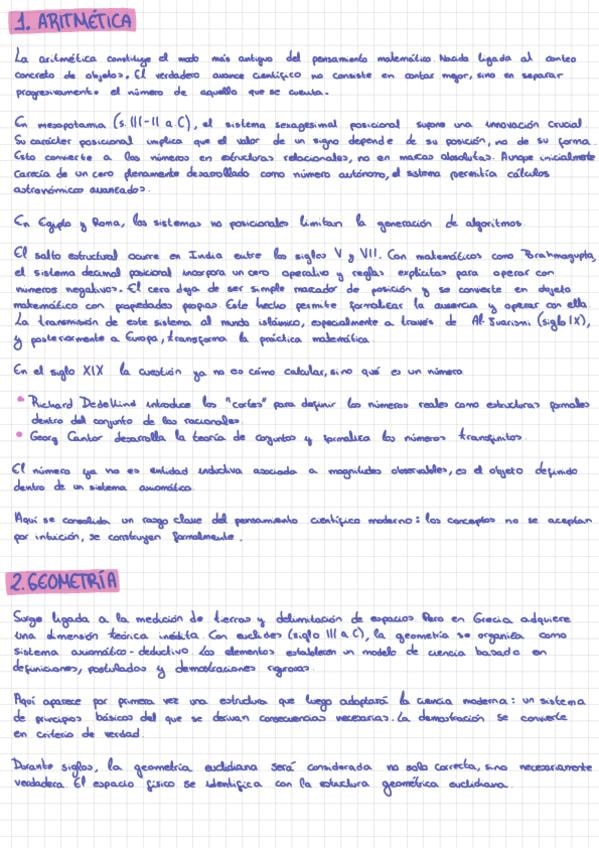 1. ARITMÉTICA
La aritmética constituye el modo más antiguo del pensamiento matemático. Nacida ligada al conteo
concreto de objetos. El verdadero avance científico no consiste en contar mejor, sino en separar
progresivamente el número de aquello que se cuenta.
En mesopotamia (s. III-II a.C), el sistema sexagesimal posicional supone una innovación crucial.
Su carácter posicional implica que el valor de un signo depende de su posición, no de su forma.
Esto convierte a los números en estructuras relacionales, no en marcas absolutas. Aunque inicialmente
carecía de un cero plenamente desarrollado como número autónomo, el sistema permitía cálculos
astronómicos avanzados.
En Egipto y Roma, los sistemas no posicionales limitan la generación de algoritmos.
El salto estructural ocurre en India entre los siglos V y VII. Con matemáticos como Brahmagupta,
el sistema decimal posicional incorpora un cero operativo y reglas explícitas para operar con
numeros negativos. El cero deja de ser simple marcador de posición y se convierte en objeto
matemático con propiedades propias. Este hecho permite formalizar la ausencia y operar con ella.
La transmisión de este sistema al mundo islámico, especialmente a través de Al-Juarismi (siglo IX),
y posteriormente a Europa, transforma la práctica matemática.
En el siglo XIX la cuestión ya no es cómo calcular, sino qué es un número.
• Richard Dedekind introduce los "cortes" para definir los números reales como estructuras formales
dentro del conjunto de los racionales.
• Georg Cantor desarrolla la teoría de conjuntos y formaliza los números transfinitos.
El número ya no es entidad inductiva asociada a magnitudes observables, es el objeto definido
dentro de un sistema axiomático.
Aquí se consolida un rasgo clave del pensamiento científico moderno: los conceptos no se aceptan
por intuición, se construyen formalmente.
2. GEOMETRÍA
Surge ligada a la medición de tierras y delimitación de espacios. Pero en Grecia adquiere
una dimensión teórica inédita. Con euclides (siglo III a.C), la geometría se organiza como
sistema axiomático-deductivo. Los elementos establecen un modelo de ciencia basado en
definiciones, postulados y demostraciones rigurosas.
Aquí aparece por primera vez una estructura que luego adoptará la ciencia moderna: un sistema
de principios básicos del que se derivan consecuencias necesarias. La demostración se convierte
en criterio de verdad.
Durante siglos, la geometría euclidiana será considerada no solo correcta, sino necesariamente
verdadera. El espacio físico se identifica con la estructura geométrica euclidiana.